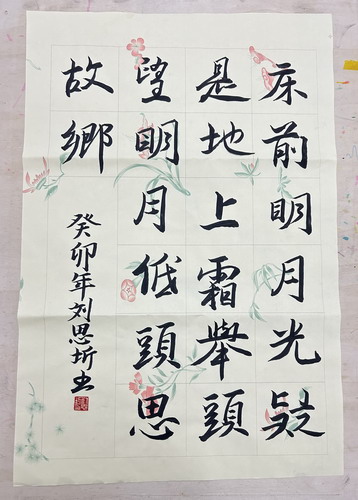 床前明月光疑
是地上霜舉頭
望明月低頭思
故鄉
癸卯年刘思圻书